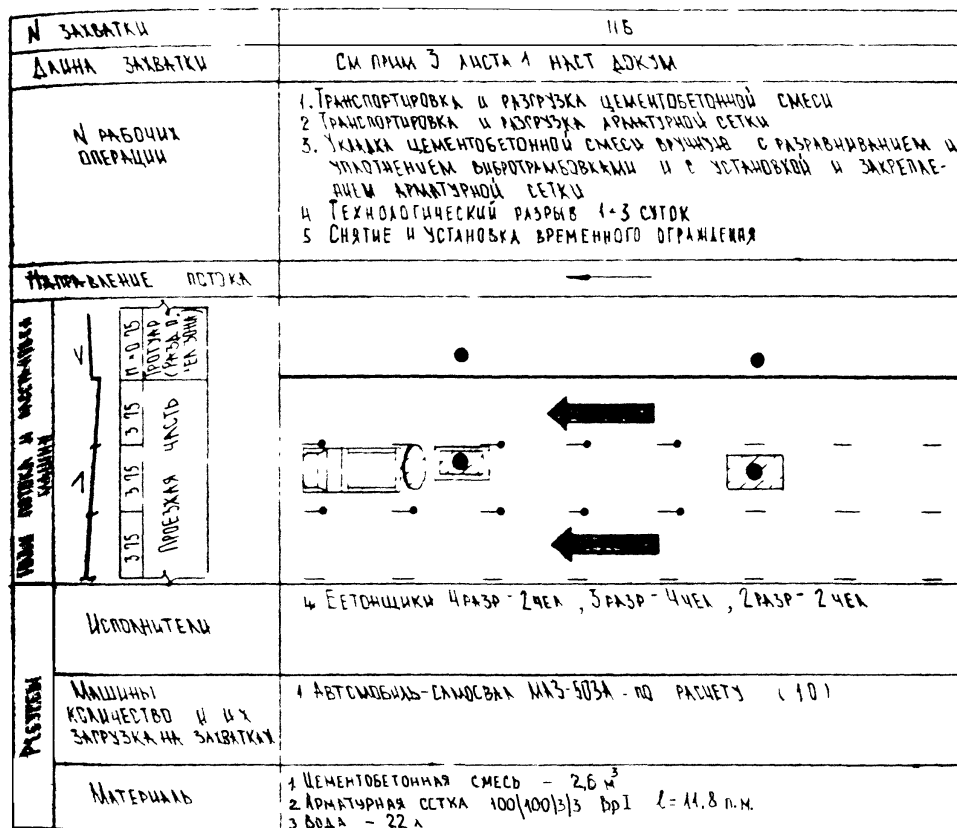 N ЗАХВАТКИ
11Б
ДЛИНА ЗАХВАТКИ
СМ ПРИМ 3 ЛИСТА 1 НАСТ ДОКУМ
N РАБОЧИХ
ОПЕРАЦИИ
1. ТРАНСПОРТИРОВКА И РАЗГРУЗКА ЦЕМЕНТОБЕТОННОЙ СМЕСИ
2 ТРАНСПОРТИРОВКА И РАЗГРУЗКА АРМАТУРНОЙ СЕТКИ
3. УКЛАДКА ЦЕМЕНТОБЕТОННОЙ СМЕСИ ВРУЧНУЮ С РАЗРАВНИВАНИЕМ И
УПЛОТНЕНИЕМ ВИБРОТРАМБОВКАМИ И С УСТАНОВКОЙ И ЗАКРЕПЛЕ-
НИЕМ АРМАТУРНОЙ СЕТКИ
4 ТЕХНОЛОГИЧЕСКИЙ РАЗРЫВ 1÷3 СУТОК
5 СНЯТИЕ И УСТАНОВКА ВРЕМЕННОГО ОГРАЖДЕНИЯ
НАПРАВЛЕНИЕ ПОТОКА
ПЛАН ПОТОКА И РАССТАНОВКА
МАШИН
П=0.75
ТРОТУАР
(РАЗД П.
ЗОНА)
3.75
3.75
3.75
ПРОЕЗЖАЯ ЧАСТЬ
РЕСУРСЫ
ИСПОЛНИТЕЛИ
4. БЕТОНЩИКИ 4 РАЗР - 2 ЧЕЛ , 3 РАЗР - 4 ЧЕЛ , 2 РАЗР - 2 ЧЕЛ
МАШИНЫ
КОЛИЧЕСТВО И ИХ
ЗАГРУЗКА НА ЗАХВАТКАХ
1 АВТОМОБИЛЬ-САМОСВАЛ МАЗ-503А - ПО РАСЧЕТУ (1 0)
МАТЕРИАЛЬ
1 ЦЕМЕНТОБЕТОННАЯ СМЕСЬ - 2,6 м³
2 АРМАТУРНАЯ СЕТКА 100/100/3/3 ВрI ℓ=11,8 п.м.
3 ВОДА - 22 л